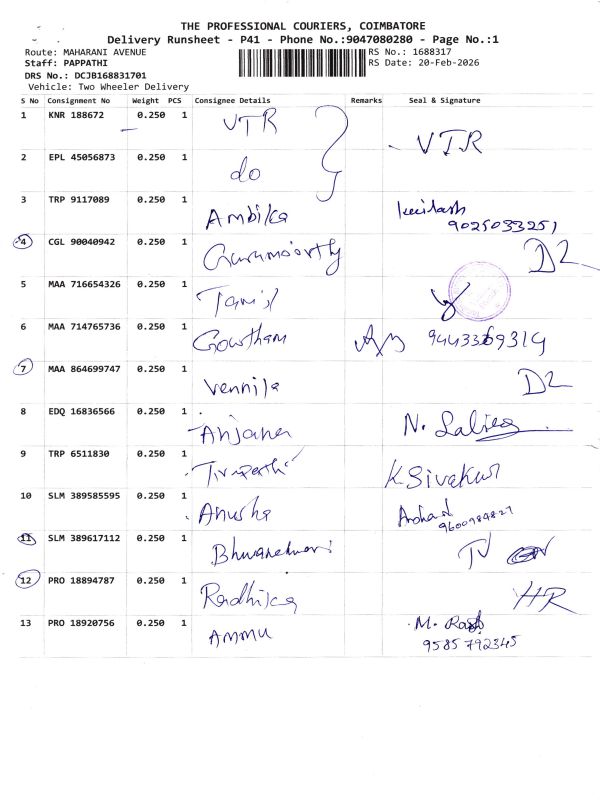 THE PROFESSIONAL COURIERS, COIMBATORE
Delivery Runsheet - P41 - Phone No.:9047080280 - Page No.:1
Route: MAHARANI AVENUE RS No.: 1688317
Staff: PAPPATHI RS Date: 20-Feb-2026
DRS No.: DCJB168831701
Vehicle: Two Wheeler Delivery
S No Consignment No Weight PCS Consignee Details Remarks Seal & Signature
1 KNR 188672 0.250 1 VTR VTR
2 EPL 45056873 0.250 1 do
3 TRP 9117089 0.250 1 Ambika
9025033251
4 CGL 90040942 0.250 1 Gurumoorthy D2
5 MAA 716654326 0.250 1 Tamil
6 MAA 714765736 0.250 1 Gowtham
7 MAA 864699747 0.250 1 Vennila D2
8 EDQ 16836566 0.250 1 Anjana N.
9 TRP 6511830 0.250 1 Tirupathi K Sivakur
10 SLM 389585595 0.250 1 Anusha
11 SLM 389617112 0.250 1 Bhuvaneshwari
12 PRO 18894787 0.250 1 Radhika HR
13 PRO 18920756 0.250 1 AMMU M.
9585792345